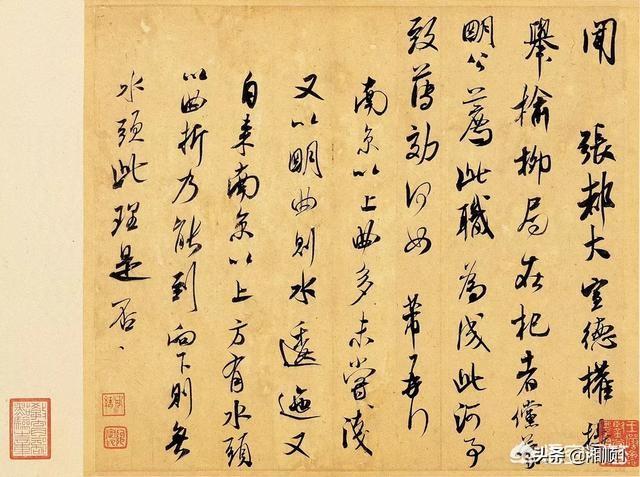 聞 張都大宣德權提
舉榆柳局在杞者儻蒙
明公薦此職為成此河事
致薄効何如 芾再
南京以上曲多未嘗淺
又以明曲則水逶迤又
自來南京以上方有水頭
以曲折乃能到向下則無
水頭此理是否
头条